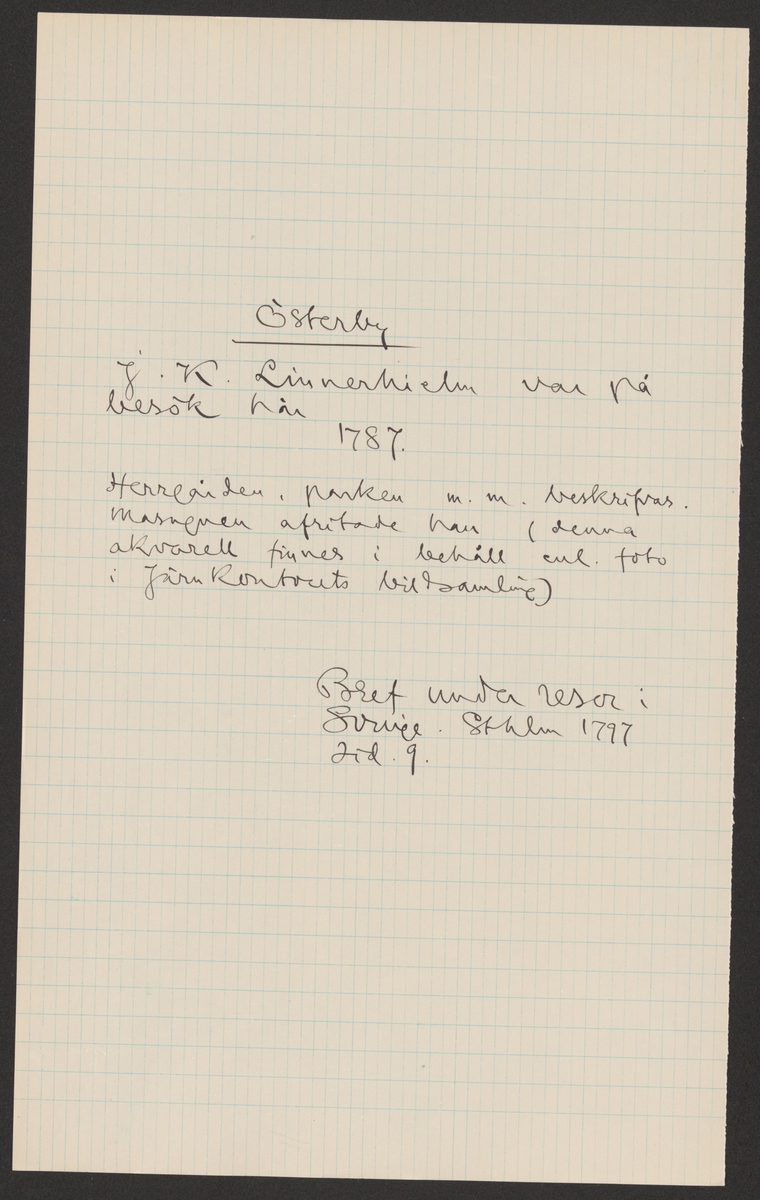 Österby
J. K. Linnerhielm var på
besök här
1787.
Herrgården, parken m. m. beskrifvas.
Masugnen afritade han (denna
akvarell finnes i behåll enl. foto
i Järnkontorets bildsamling)
Bref under resor i
Sverige. Sthlm 1797
sid. 9.